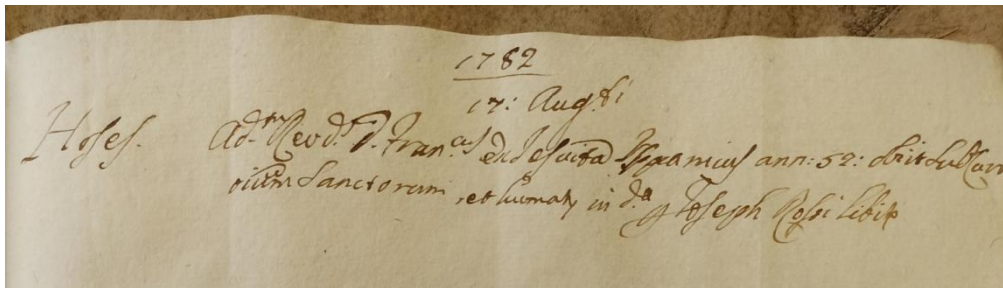 1782
17: Aug.ti
Hoses. Ad.m Revd.s D. Fran.cus ex Jesuita Hispanius ann: 52: obiit sub
Sanctorum, et humatus in d.a Joseph Rossi